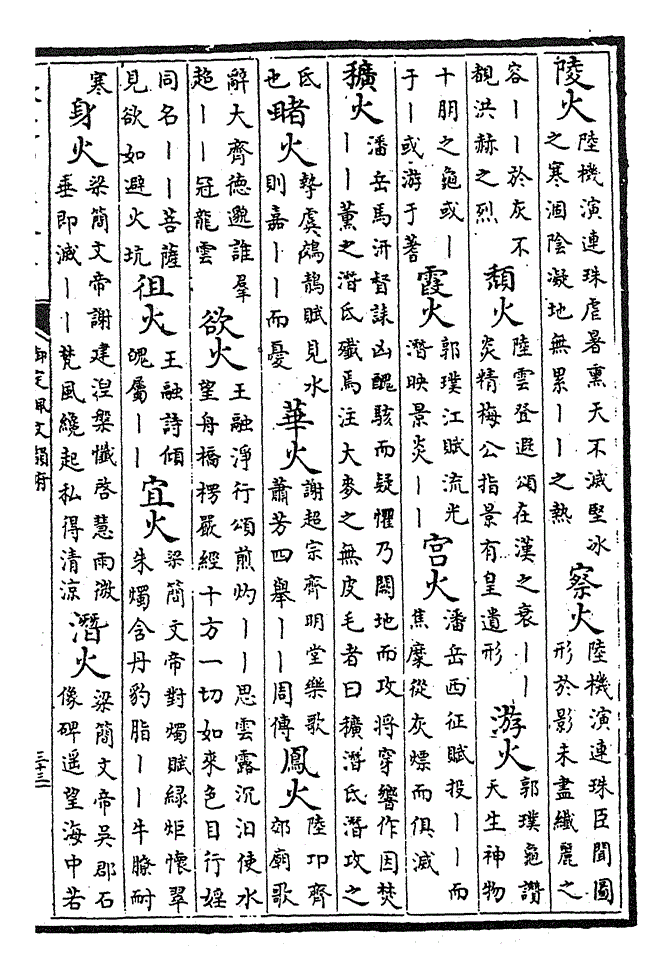 陵火
陸機演連珠虐暑熏天不減堅冰
之寒涸陰凝地無累丨丨之熱
察火
陸機演連珠臣聞圖
形於影未盡纖麗之
容丨丨於灰不
覩洪赫之烈
頽火
陸雲登遐頌在漢之衰丨丨
炎精梅公指景有皇遺形
游火
郭璞龜讚
天生神物
十朋之龜或丨
于丨或游于蓍
霞火
郭璞江賦流光
潛映景炎丨丨
宫火
潘岳西征賦投丨丨而
焦糜從灰熛而俱滅
穬火
潘岳馬汧督誄凶醜駭而疑懼乃闕地而攻將穿響作因焚
丨丨薰之潛氐殲焉注大麥之無皮毛者曰穬潛氐潛攻之
氐
也
睹火
摯虞鵁鶄賦見水
則嘉丨丨而憂
華火
謝超宗齊明堂樂歌
蕭芳四舉丨丨周傳
鳳火
陸卬齊
郊廟歌
辭大齊德邈誰羣
趫丨丨冠龍雲
欲火
王融淨行頌煎灼丨丨思雲露沉汨使水
望舟橋楞嚴經十方一切如來色目行婬
同名丨丨菩薩
見欲如避火坑
徂火
王融詩傾
魄屬丨丨
宜火
梁簡文帝對燭賦緑炬懷翠
朱燭含丹豹脂丨丨牛膫耐
寒
身火
梁簡文帝謝建涅槃懺啓慧雨微
垂即滅丨丨梵風纔起私得清涼
潛火
梁簡文帝吳郡石
像碑遥望海中若
御定佩文韻府
三十三